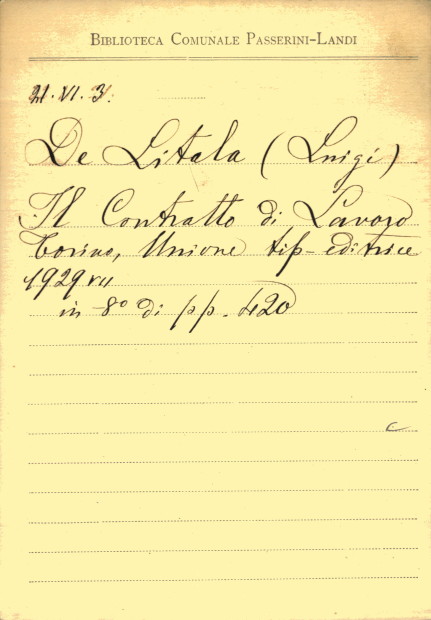 BIBLIOTECA COMUNALE PASSERINI-LANDI
VI. 3.
De Litala (Luigi)
Il Contratto di Lavoro
Torino, Unione tip-editrice
1929 VII
in 8° di pp. 420